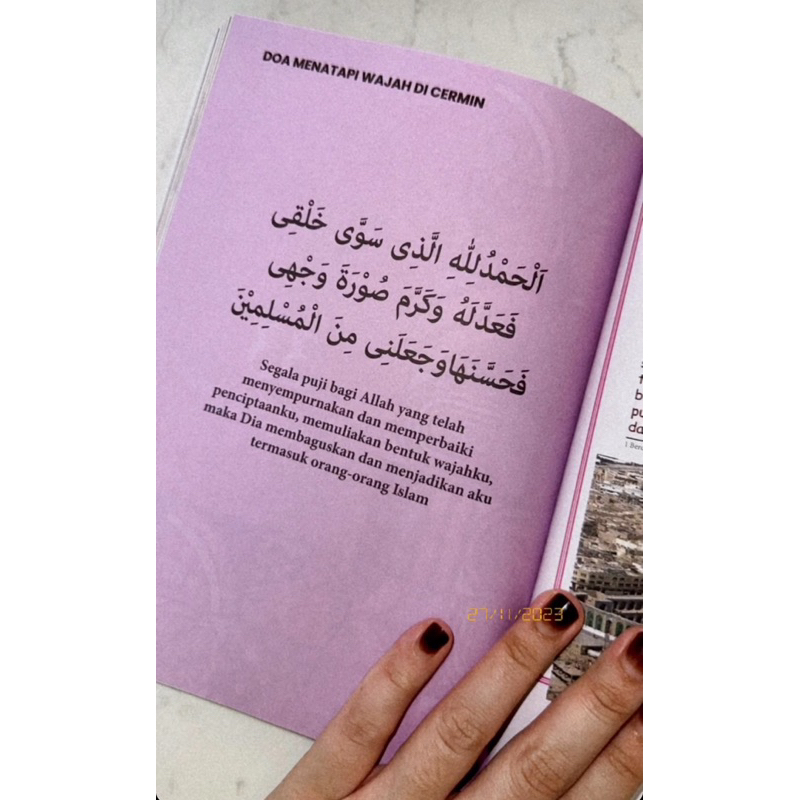 DOA MENATAPI WAJAH DI CERMIN
اَلْحَمْدُلِلّٰهِ الَّذِى سَوَّى خَلْقِى
فَعَدَّلَهُ وَكَرَّمَ صُوْرَةَ وَجْهِى
فَحَسَّنَهَاوَجَعَلَنِى مِنَ الْمُسْلِمِيْنَ
Segala puji bagi Allah yang telah
menyempurnakan dan memperbaiki
penciptaanku, memuliakan bentuk wajahku,
maka Dia membaguskan dan menjadikan aku
termasuk orang-orang Islam
27/11/2023